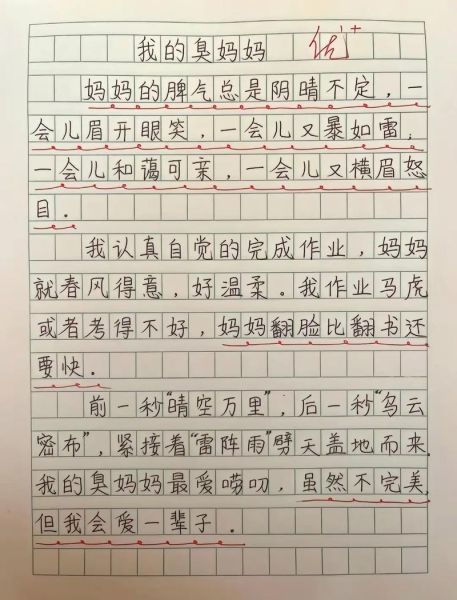 我的臭妈妈 优+
妈妈的脾气总是阴晴不定，一
会儿眉开眼笑，一会儿又暴如雷，
一会儿和蔼可亲，一会儿又横眉怒
目．
我认真自觉的完成作业，妈妈
就春风得意，好温柔。我作业马虎
或者考得不好，妈妈翻脸比翻书还
要快．
前一秒“晴空万里”，后一秒“乌云
密布”，紧接着“雷阵雨”劈天盖地而来．
我的臭妈妈最爱唠叨，虽然不完美，
但我会爱一辈子．